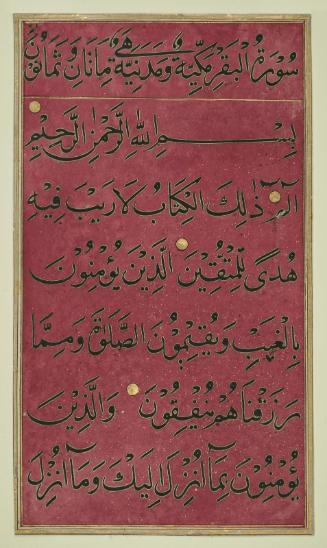 سُورَةُ الْبَقَرِ مَكِّيَّةٌ وَمَدَنِيَّةٌ وَهِيَ مِائَتَانِ وَثَمَانُونَ
بِسْمِ اللهِ الرَّحْمٰنِ الرَّحِيمِ
الٓمٓ ذٰلِكَ الْكِتَابُ لَا رَيْبَ فِيهِ
هُدًى لِلْمُتَّقِينَ الَّذِينَ يُؤْمِنُونَ
بِالْغَيْبِ وَيُقِيمُونَ الصَّلٰوةَ وَمِمَّا
رَزَقْنَاهُمْ يُنْفِقُونَ وَالَّذِينَ
يُؤْمِنُونَ بِمَٓا اُنْزِلَ اِلَيْكَ وَمَٓا اُنْزِلَ